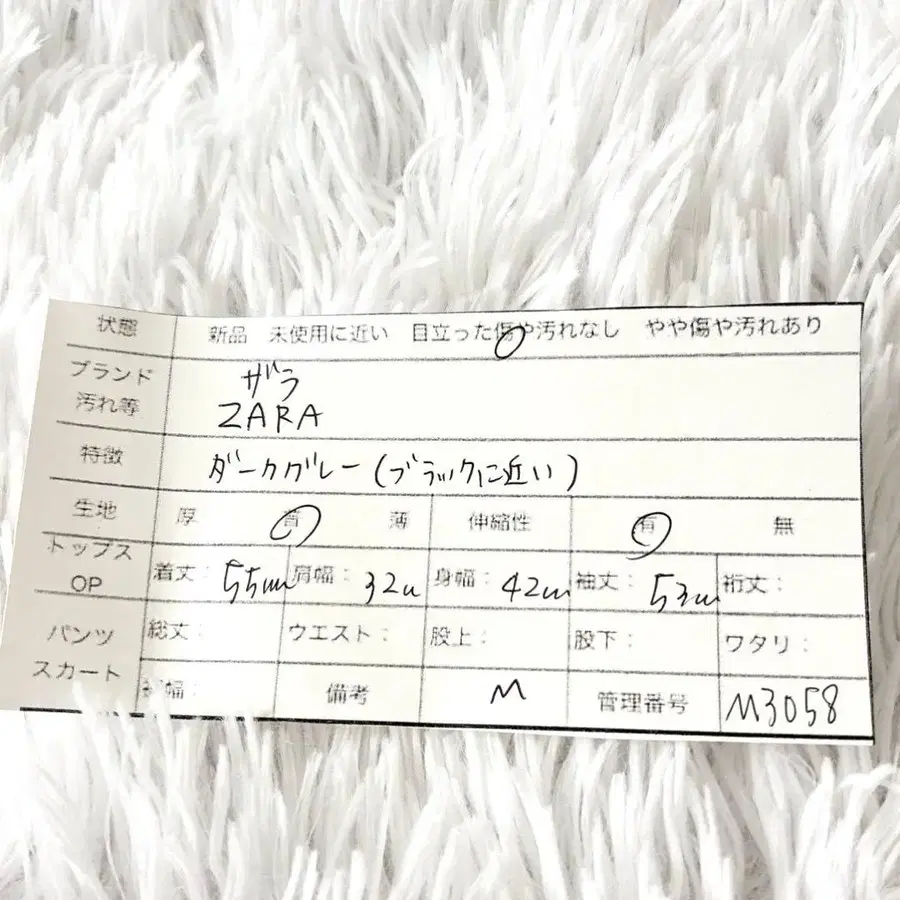 状態 新品 未使用に近い 目立った傷や汚れなし やや傷や汚れあり
ブランド ザラ
汚れ等 ZARA
特徴 ダークグレー(ブラックに近い)
生地 厚 普 薄 伸縮性 有 無
トップス
OP 着丈: 55cm 肩幅: 32cm 身幅: 42cm 袖丈: 53cm 裄丈:
パンツ 総丈: ウエスト: 股上: 股下: ワタリ:
スカート
裾幅: 備考 M 管理番号 M3058